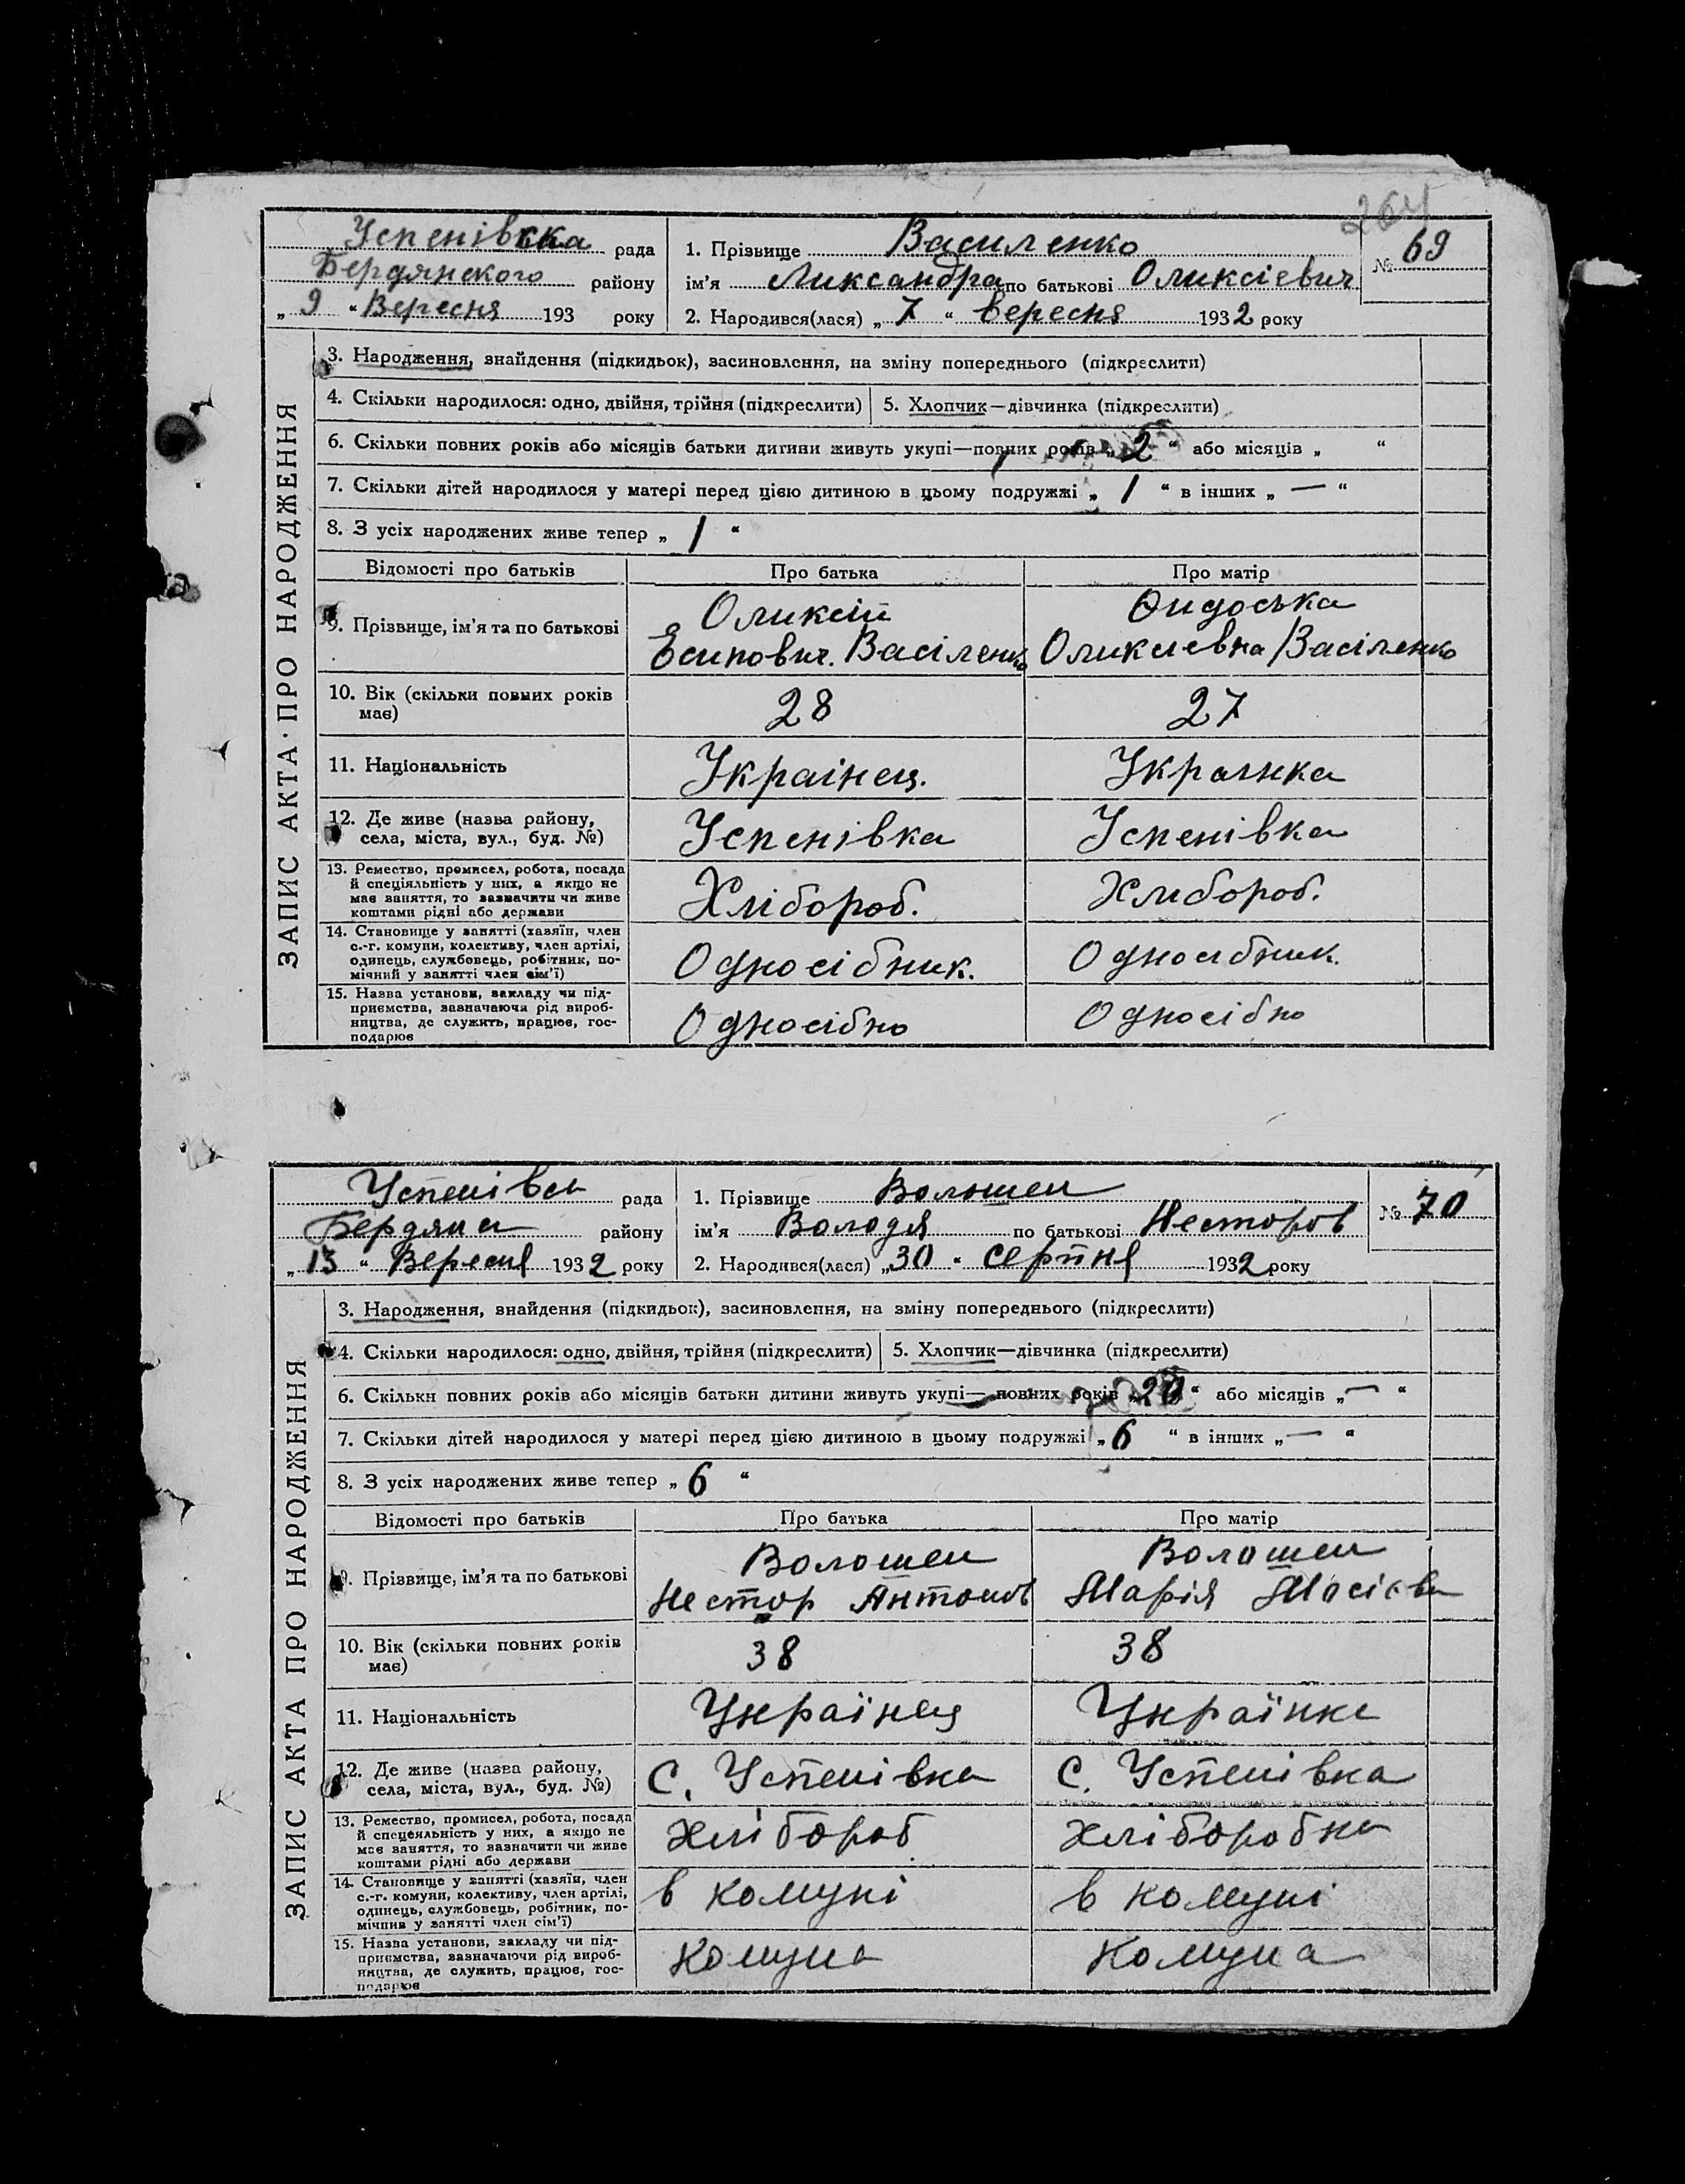 264
Успенівска рада
Бердянского району
„ 9 “ Вересня 193 року
1. Прізвище Василенко
ім'я Ликсандра по батькові Оликсіевич
2. Народився(лася) „ 7 “ вересня 1932 року
№ 69
ЗАПИС АКТА·ПРО НАРОДЖЕННЯ
3. Народження, знайдення (підкидьок), засиновлення, на зміну попереднього (підкреслити)
4. Скільки народилося: одно, двійня, трійня (підкреслити) 5. Хлопчик—дівчинка (підкреслити)
6. Скільки повних років або місяців батьки дитини живуть укупі—повних років „ 2 “ або місяців „ “
7. Скільки дітей народилося у матері перед цією дитиною в цьому подружжі „ 1 “ в інших „ — “
8. З усіх народжених живе тепер „ 1 “
Відомості про батьків Про батька Про матір
9. Прізвище, ім'я та по батькові
Оликсій
Есипович. Васіленко
Ондоська
Оликсиевна Васіленко
10. Вік (скільки повних років
має)
28 27
11. Національність Украінец. Украинка
12. Де живе (назва району,
села, міста, вул., буд. №)
Успенівка Успенівка
13. Ремество, промисел, робота, посада
й спеціяльність у них, а якщо не
має заняття, то зазначити чи живе
коштами рідні або держави
Хлібороб. Хлибороб.
14. Становище у занятті (хазяїн, член
с.-г. комуни, колективу, член артілі,
одинець, службовець, робітник, по-
мічний у занятті член сім'ї)
Односібник. Односибник.
15. Назва установи, закладу чи під-
приємства, зазначаючи рід вироб-
ництва, де служить, працює, гос-
подарює
Односібно Односібно
Успенівса рада
Бердяна району
„ 13 “ Вересня 1932 року
1. Прізвище Волошен
ім'я Володя по батькові Несторов
2. Народився(лася) „ 30 “ серпня 1932 року
№ 70
ЗАПИС АКТА ПРО НАРОДЖЕННЯ
3. Народження, знайдення (підкидьок), засиновлення, на зміну попереднього (підкреслити)
4. Скільки народилося: одно, двійня, трійня (підкреслити) 5. Хлопчик—дівчинка (підкреслити)
6. Скільки повних років або місяців батьки дитини живуть укупі— повних років „ 20 “ або місяців „ — “
7. Скільки дітей народилося у матері перед цією дитиною в цьому подружжі „ 6 “ в інших „ — “
8. З усіх народжених живе тепер „ 6 “
Відомості про батьків Про батька Про матір
9. Прізвище, ім'я та по батькові
Волошен
Нестор Антонов
Волошен
Марія Мосієва
10. Вік (скільки повних років
має)
38 38
11. Національність Українец Українка
12. Де живе (назва району,
села, міста, вул., буд. №)
С. Успенівка С. Успенівка
13. Ремество, промисел, робота, посада
й спецеяльність у них, а якщо не
має заняття, то зазначити чи живе
коштами рідні або держави
Хлібороб Хліборобка
14. Становище у занятті (хазяїн, член
с.-г. комуни, колективу, член артілі,
одинець, службовець, робітник, по-
мічний у занятті член сім'ї)
в комуні в комуні
15. Назва установи, закладу чи під-
приємства, зазначаючи рід вироб-
ництва, де служить, працює, гос-
подарює
Комуна Комуна